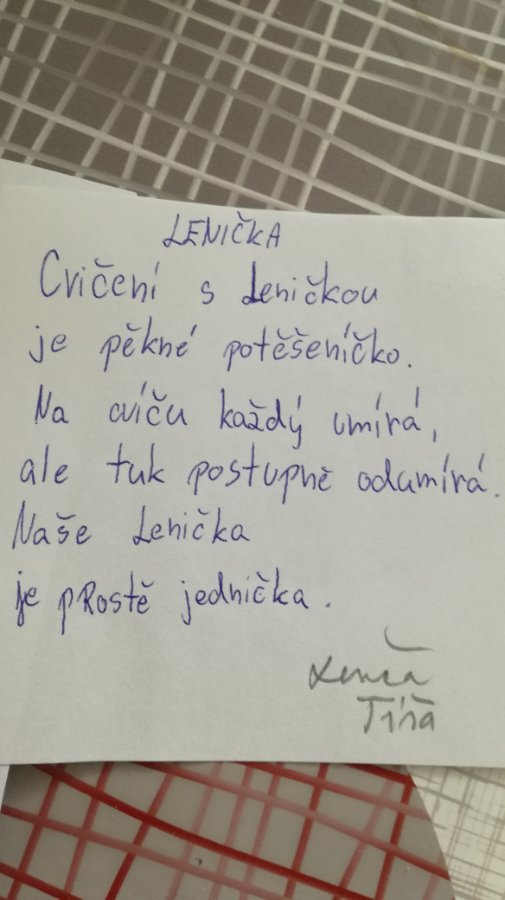 LENIČKA
Cvičení s Leničkou
je pěkné potěšeníčko.
Na cvíču každý umírá,
ale tuk postupně odumírá.
Naše Lenička
je pRostě jednička.
Lenča